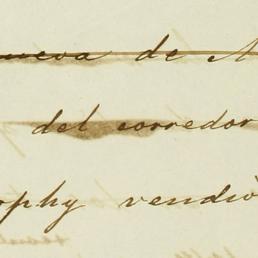 nueva de N
del corredor
ophy vendió